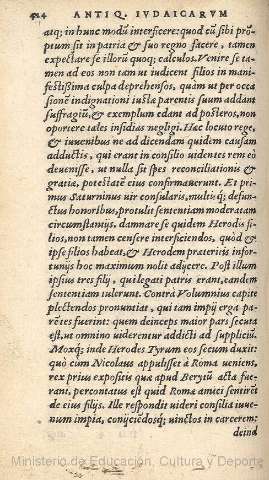 424 ANTIQ. IVDAICARVM
atq; in hunc modũ interficere: quod cũ sibi prõ-
ptum sit in patria & suo regno facere, tamen
expectare se illorũ quoq; calculos. Venire se ta-
men ad eos non tam ut iudicent filios in mani-
festissima culpa deprehensos, quàm ut per occa
sionẽ indignationi iustæ parentis suum addant
suffragiũ, & exemplum edant ad posteros, non
oportere tales insidias negligi. Hæc locuto rege,
& iuuenibus ne ad dicendam quidem causam
adductis, qui erant in consilio uidentes rem eò
deuenisse, ut nulla sit spes reconciliationis &
gratiæ, potestatẽ eius confirmauerunt. Et pri-
mus Saturninus uir consularis, multisq; defun-
ctus honoribus, protulit sententiam moderatam
circumstantijs, damnare se quidem Herodis fi-
lios, non tamen censere interficiendos, quòd &
ipse filios habeat, & Herodem præteritis infor-
tunijs hoc maximum nolit adijcere. Post illum
ipsius tres filij, qui legati patris erant, eandem
sententiam tulerunt. Contrà Volumnius capite
plectendos pronuntiat, qui tam impij erga pa-
rẽtes fuerint: quem deinceps maior pars secuta
est, ut omnino uiderentur addicti ad suppliciũ.
Moxq; inde Herodes Tyrum eos secum duxit:
quò cum Nicolaus appulisset à Roma ueniens,
rex prius expositis quæ apud Berytũ acta fue-
rant, percontatus est quid Romæ amici sentirẽt
de eius filijs. Ille respondit uideri consilia iuue-
num impia, conijciẽdosq; uinctos in carcerem:
deind
Ministerio de Educación, Cultura y Deporte